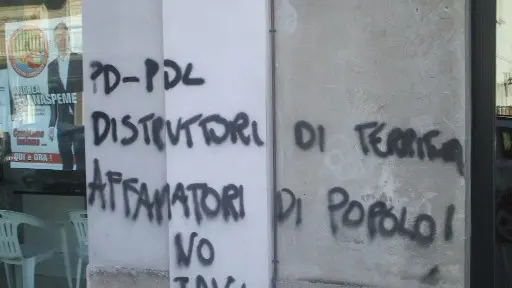 PD-PDL
DISTRUTTORI DI TERRITORI
AFFAMATORI DI POPOLO!
NO
ANDREA
QUI e ORA!